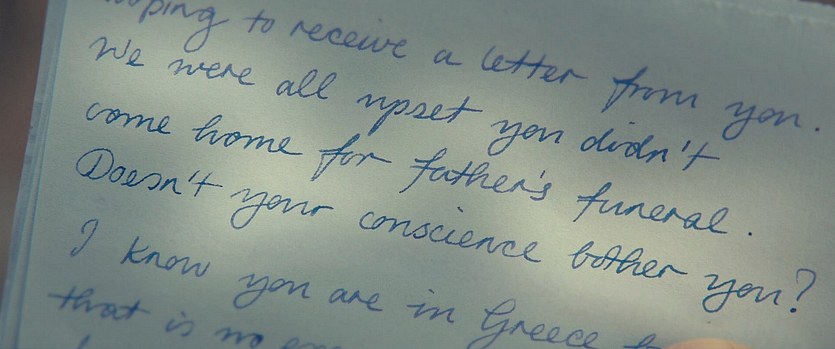 to receive a letter from you.
We were all upset you didn't
come home for father's funeral.
Doesn't your conscience bother you?
I know you are in Greece
that is no